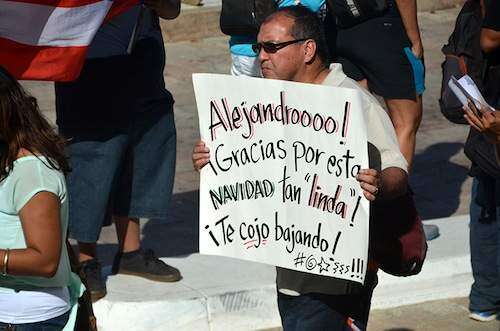 Alejandroooo!
¡Gracias por esta
NAVIDAD tan "linda"!
¡Te cojo bajando!
#@☆¡$$$!!!